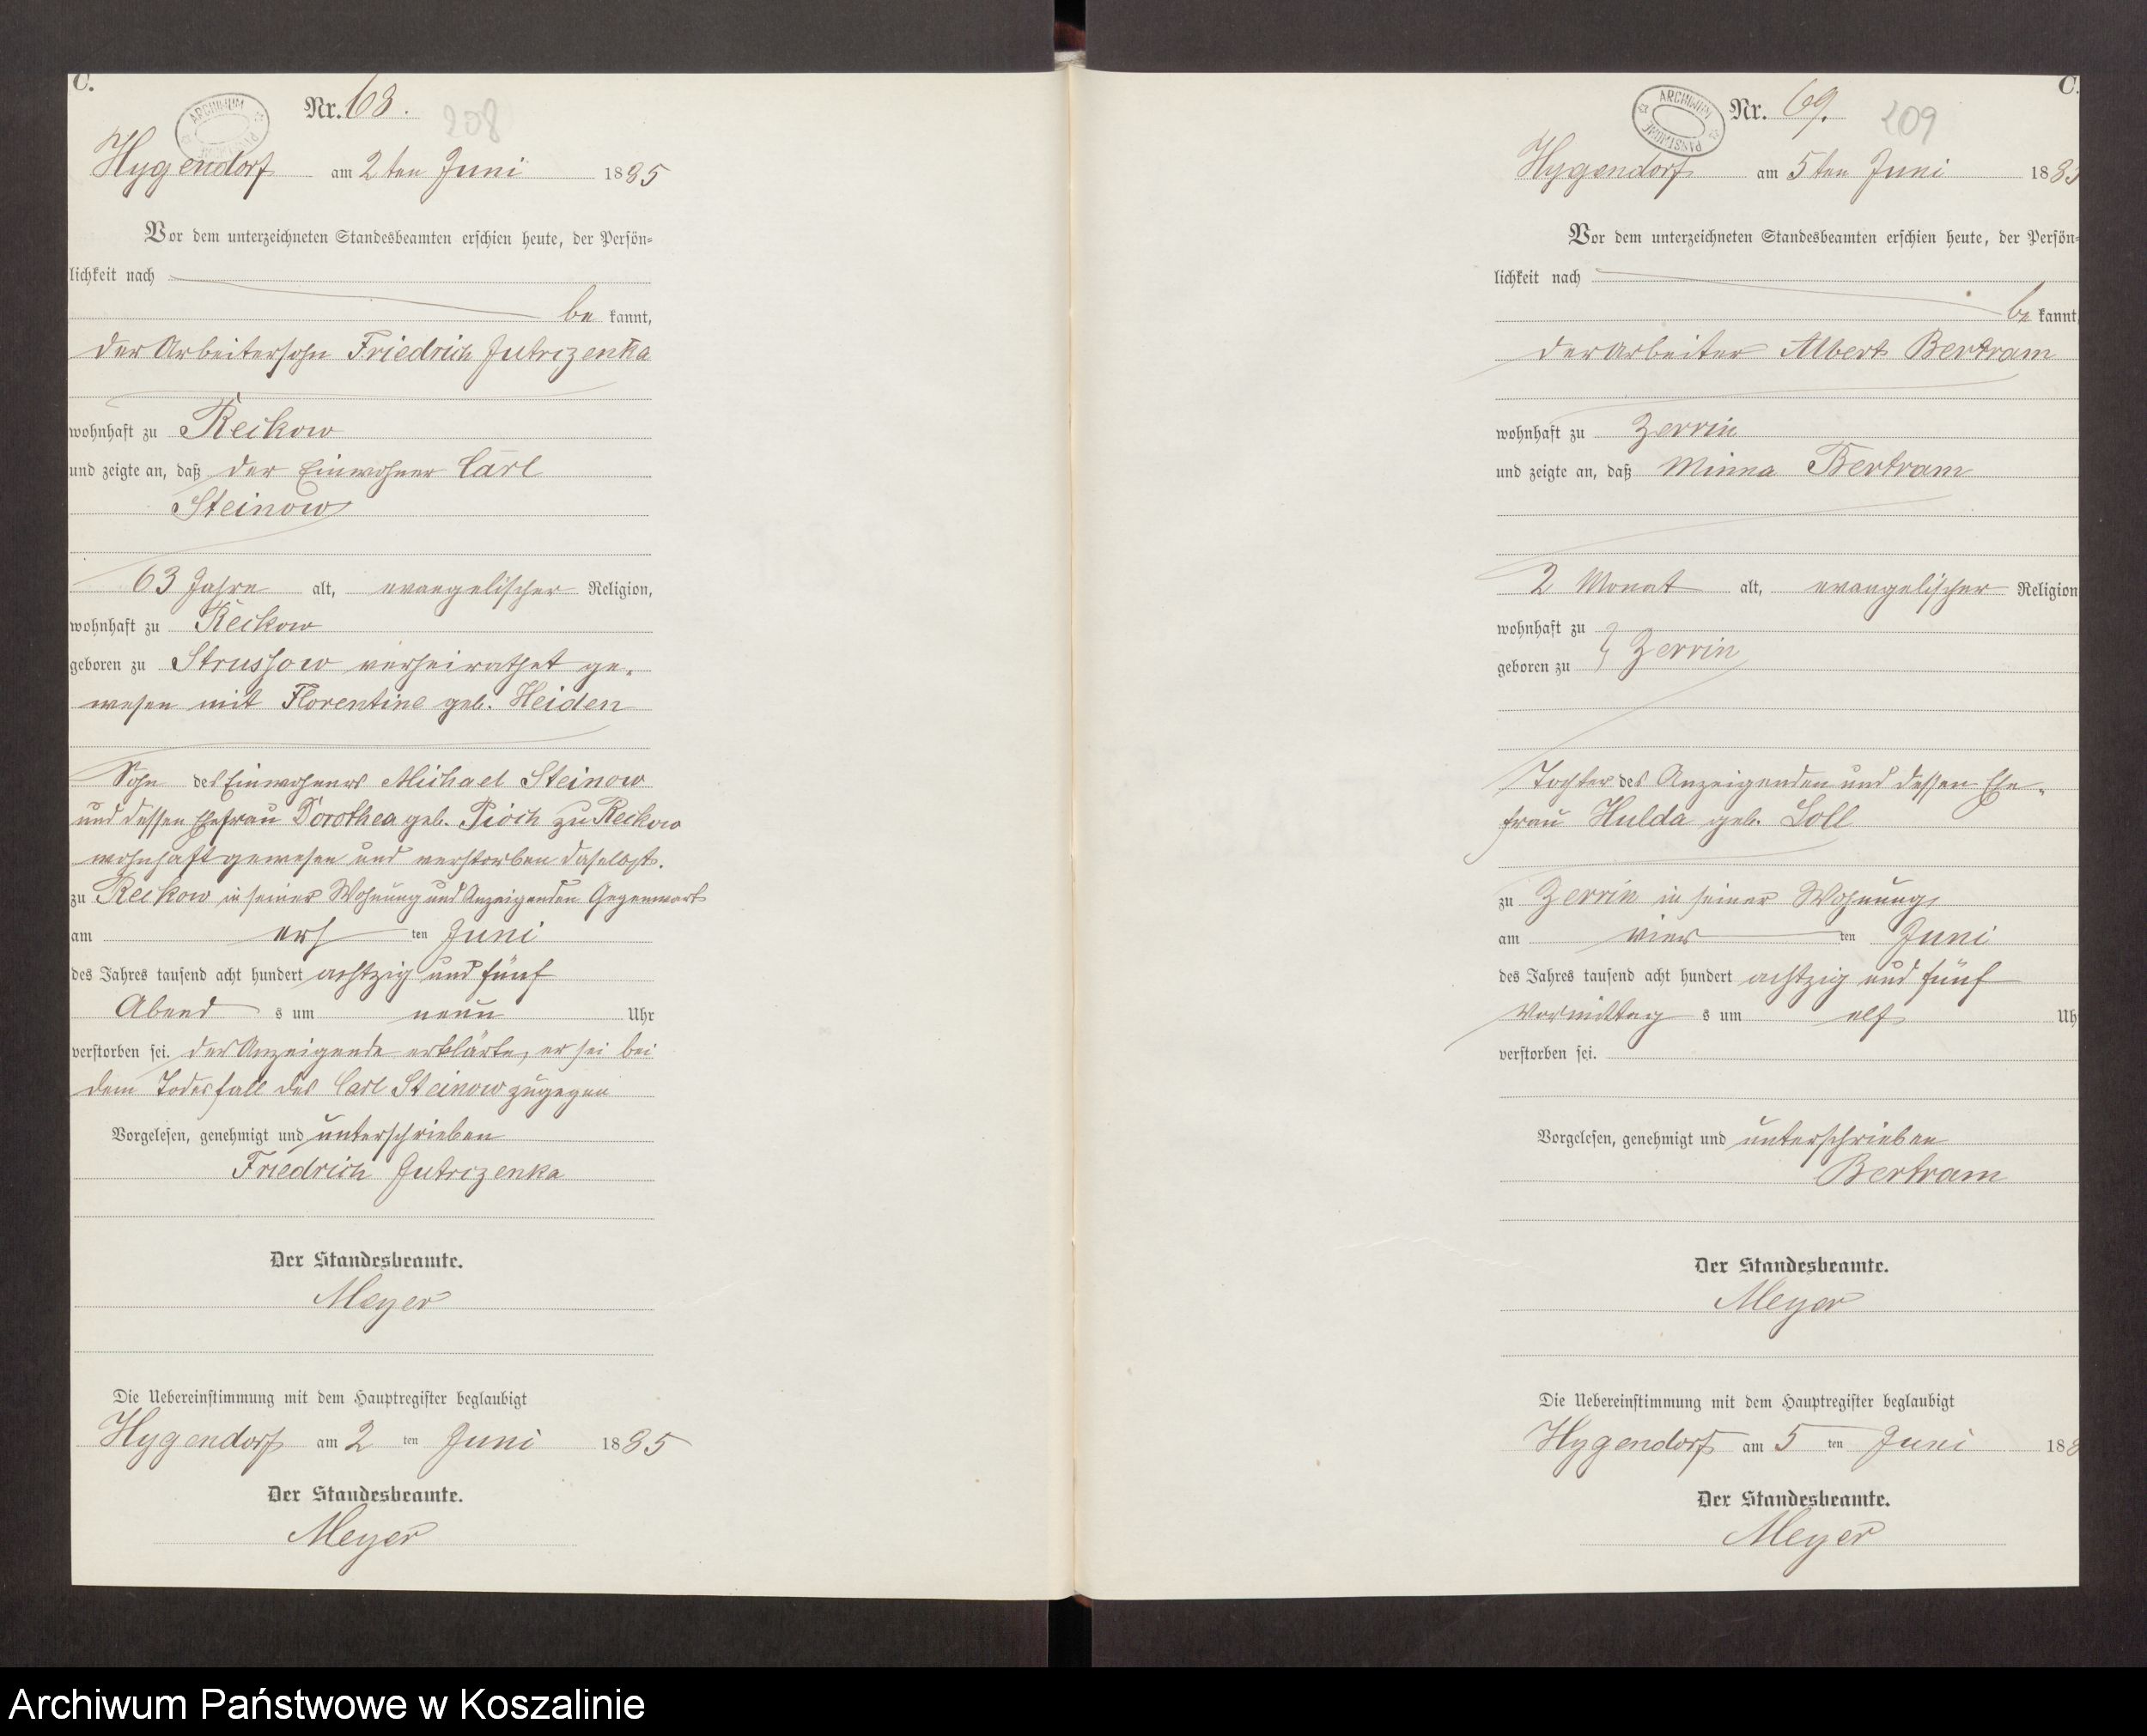 C.
ARCHIWUM
Nr. 68.
208
Hygendorf am 2ten Juni 1885
Vor dem unterzeichneten Standesbeamten erschien heute, der Persön=
lichkeit nach
be kannt,
der Arbeitersohn Friedrich Jutrczenka
wohnhaft zu Reckow
und zeigte an, daß der Einwohner Carl
Steinow
63 Jahre alt, evangelischer Religion,
wohnhaft zu Reckow
geboren zu Strussow verheirathet ge-
wesen mit Florentine geb. Heiden
Sohn des Einwohners Michael Steinow
und dessen Ehefrau Dorothea geb. Pioch zu Reckow
wohnhaft gewesen und verstorben daselbst.
zu Reckow in seiner Wohnung und Anzeigenden Gegenwart
am ers ten Juni
des Jahres tausend acht hundert achtzig und fünf
Abend s um neun Uhr
verstorben sei. der Anzeigende erklärte, er sei bei
dem Todesfall des Carl Steinow zugegen
Vorgelesen, genehmigt und unterschrieben
Friedrich Jutrczenka
Der Standesbeamte.
Meyer
Die Uebereinstimmung mit dem Hauptregister beglaubigt
Hygendorf am 2 ten Juni 1885
Der Standesbeamte.
Meyer
C.
ARCHIWUM PAŃSTWOWE
Nr. 69.
209
Hygendorf am 5ten Juni 1885
Vor dem unterzeichneten Standesbeamten erschien heute, der Persön=
lichkeit nach
be kannt
der Arbeiter Albert Bertram
wohnhaft zu Zerrin
und zeigte an, daß Minna Bertram
2 Monat alt, evangelischer Religion
wohnhaft zu
geboren zu } Zerrin
Tochter des Anzeigenden und dessen Ehe-
frau Hulda geb. Loll
zu Zerrin in seiner Wohnung
am vier ten Juni
des Jahres tausend acht hundert achtzig und fünf
Vormittag s um elf Uh
verstorben sei.
Vorgelesen, genehmigt und unterschrieben
Bertram
Der Standesbeamte.
Meyer
Die Uebereinstimmung mit dem Hauptregister beglaubigt
Hygendorf am 5 ten Juni 188
Der Standesbeamte.
Meyer
Archiwum Państwowe w Koszalinie